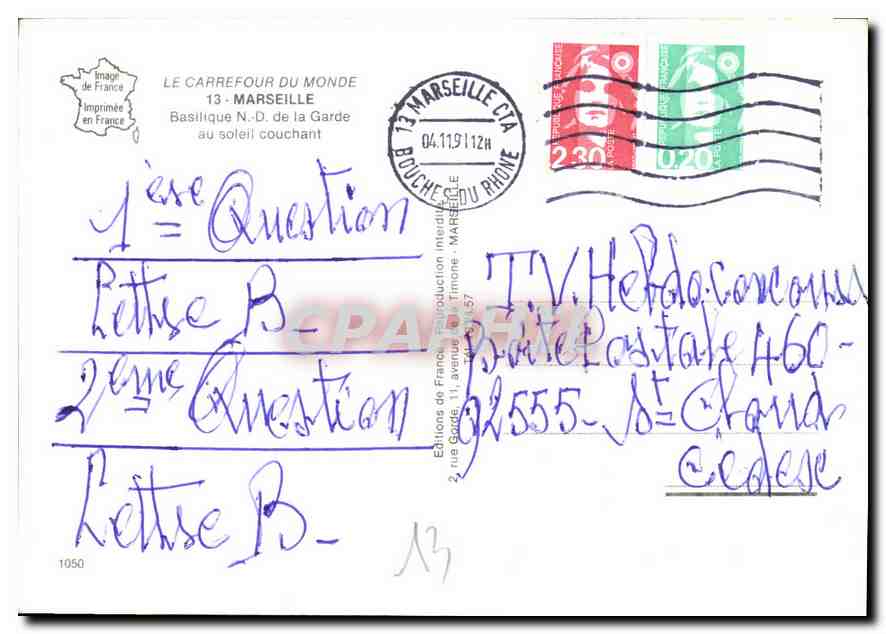 Image
de France
Imprimée
en France
LE CARREFOUR DU MONDE
13 - MARSEILLE
Basilique N.-D. de la Garde
au soleil couchant
13 MARSEILLE CTA
04.11.91 12H
BOUCHES DU RHONE
REPUBLIQUE FRANÇAISE
2,30
LA POSTE
REPUBLIQUE FRANÇAISE
0,20
LA POSTE
1ère Question
Lettre B_
2ème Question
Lettre B_
Editions de France - Reproduction interdite
2, rue Gorde, 11, avenue de la Timone - MARSEILLE
T.V. Hebdo. concours
Boite Postale 460-
92555- St Cloud
Cedex
CPARHIA
13
1050